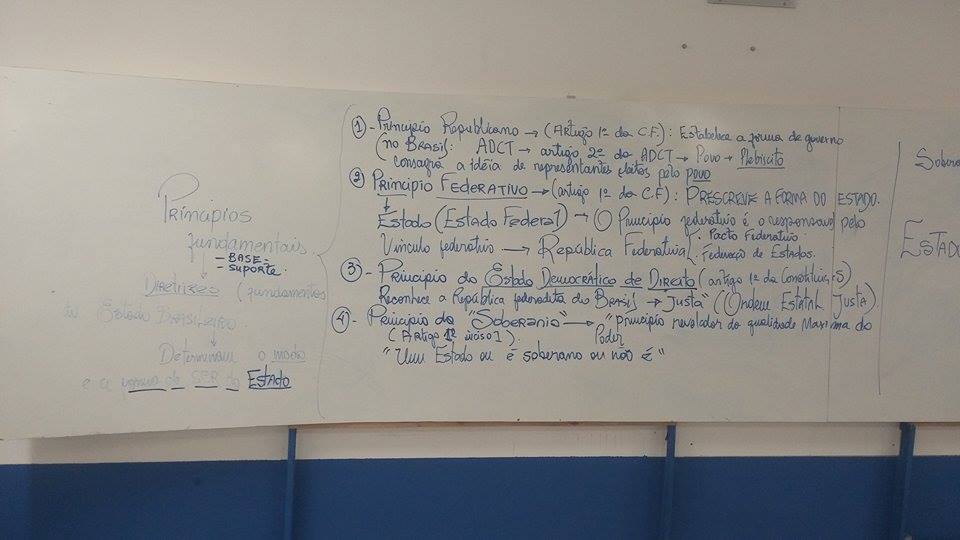 Princípios
fundamentais
- BASE -
- suporte.
Diretrizes (fundamentos
do Estado Brasileiro.
Determinam o modo
e a forma de SER do ESTADO
① - Princípio Republicano → (Artigo 1º da C.F.): Estabelece a forma de governo
(no Brasil: ADCT → artigo 2º do ADCT → Povo → Plebiscito
consagra a idéia de representantes eleitos pelo povo
② Princípio FEDERATIVO → (artigo 1º da C.F): PRESCREVE A FORMA DO ESTADO.
Estado (Estado Federal) → O Princípio federativo é o responsável pelo
Vínculo federativo → República Federativa (. Pacto Federativo
. Federação de Estados.
③ - Princípio do Estado Democrático de Direito (artigo 1º da Constituição)
Reconhece a República federativa do Brasil → "Justa" (Ordem Estatal Justa).
④ - Princípio da "Soberania" → "Princípio revelador da qualidade Máxima do
(Artigo 1º inciso 1). Poder
"Um Estado ou é soberano ou não é"
Sobera
ESTADO